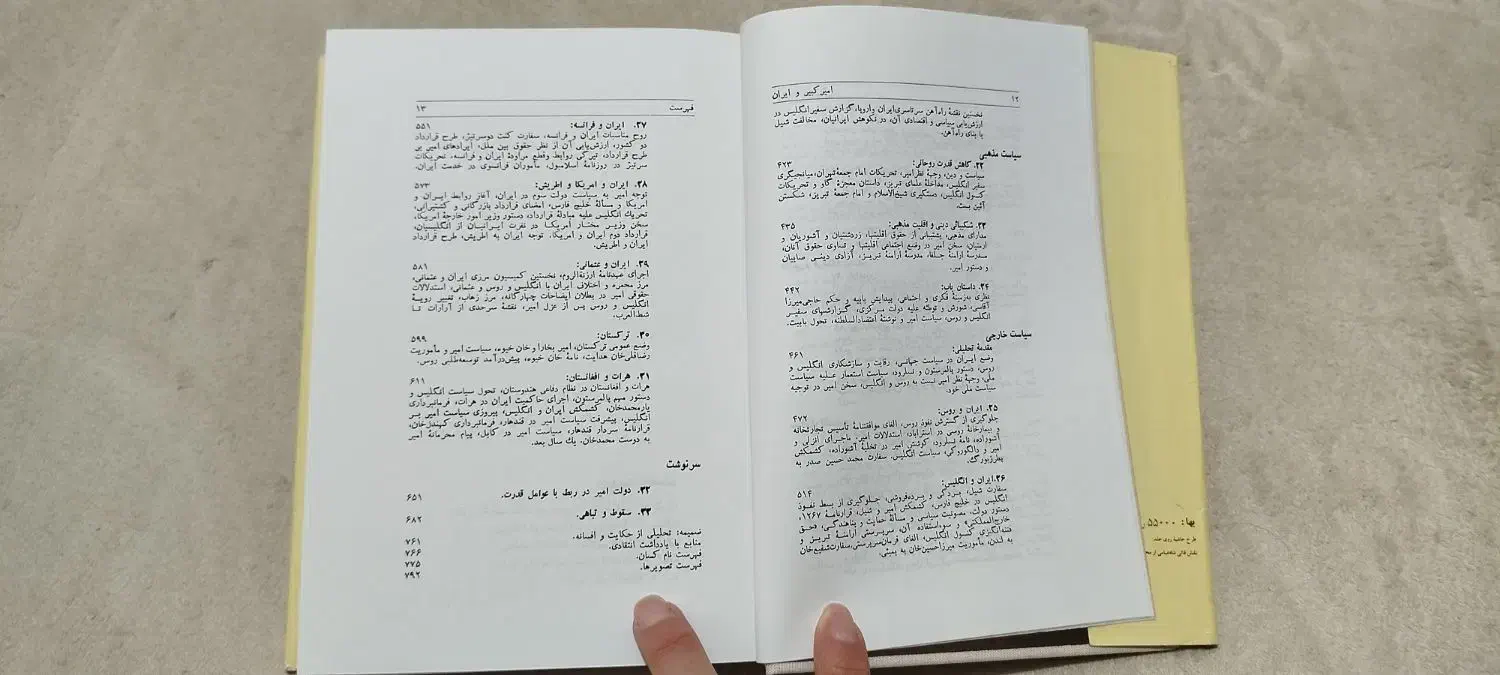 امیر کبیر و ایران
۱۲
نخستین نقشهٔ راه‌آهن سرتاسری ایران و اروپا، گزارش سفیر انگلیس در
ارزش‌یابی سیاسی و اقتصادی آن، در نکوهش ایرانیان، مخالفت شیل
با بنای راه‌آهن.
سیاست مذهبی
۲۲. کاهش قدرت روحانی: ۴۲۳
سیاست و دین، وجههٔ نظر امیر، تحریکات امام جمعهٔ تهران، میانجیگری
سفیر انگلیس، مداخلهٔ علمای تبریز، داستان معجزهٔ گاو و تحریکات
کنسول انگلیس، دستگیری شیخ‌الاسلام و امام جمعهٔ تبریز، شکستن
آئین بست.
۲۳. شکیبائی دینی و اقلیت مذهبی: ۴۳۵
مدارای مذهبی، پشتیبانی از حقوق اقلیتها، زردشتیان و آشوریان و
ارمنیان، سخن امیر در وضع اجتماعی اقلیتها و تساوی حقوق آنان،
مدرسهٔ ارامنهٔ جلفا، مدرسهٔ ارامنهٔ تبریز، آزادی دینی صابیان
و دستور امیر.
۲۴. داستان باب: ۴۴۲
نظری به زمینهٔ فکری و اجتماعی، پیدایش بابیه و حکم حاجی‌میرزا
آقاسی، شورش و توطئه علیه دولت مرکزی، گزارشهای سفیر
انگلیس و روس، سیاست امیر و نوشتهٔ اعتضادالسلطنه، تحول بابیت.
سیاست خارجی
مقدمهٔ تحلیلی: ۴۶۱
وضع ایران در سیاست جهانی، رقابت و سازشکاری انگلیس و
روس، دستور پالمرستون و نسلرود، سیاست استعمار علیه سیاست
ملی، وجههٔ نظر امیر نسبت به روس و انگلیس، سخن امیر در توجیه
سیاست ملی خود.
۲۵. ایران و روس: ۴۷۲
جلوگیری از گسترش نفوذ روس، الغای موافقتنامهٔ تأسیس تجارتخانه
و بیمارخانهٔ روسی در استراباد، استدلالات امیر. ماجرای انزلی و
آشوراده، نامهٔ نسلرود، کوشش امیر در تخلیهٔ آشوراده، کشمکش
امیر و دالگوروکی، سیاست انگلیس، سفارت محمد حسین صدر به
پطرزبورگ.
۲۶. ایران و انگلیس: ۵۱۴
سفارت شیل، بردگی و برده‌فروشی، جلوگیری از بسط نفوذ
انگلیس در خلیج فارس، کشمکش امیر و شیل، قرارنامهٔ ۱۲۶۷،
دستور دولت. مصونیت سیاسی و مسألهٔ حمایت و پناهندگی، «حق
خارج‌المملکتی» و سوءاستفاده آن، سرپرستی ارامنهٔ تبریز و
فتنه‌انگیزی کنسول انگلیس، الغای فرمان سرپرستی، سفارت شفیع‌خان
به لندن، مأموریت میرزا حسین‌خان به بمبئی.
فهرست
۱۳
۲۷. ایران و فرانسه: ۵۵۱
روح مناسبات ایران و فرانسه، سفارت کنت دوسرتیژ، طرح قرارداد
دو کشور، ارزش‌یابی آن از نظر حقوق بین ملل، ایرادهای امیر بر
طرح قرارداد، تیرگی روابط وقطع مراودهٔ ایران و فرانسه، تحریکات
سرتیژ در روزنامهٔ اسلامبول، مأموران فرانسوی در خدمت ایران.
۲۸. ایران و امریکا و اطریش: ۵۷۳
توجه امیر به سیاست دولت سوم در ایران، آغاز روابط ایران و
امریکا و مسألهٔ خلیج فارس، امضای قرارداد بازرگانی و کشتیرانی،
تحریك انگلیس علیه مبادلهٔ قرارداد، دستور وزیر امور خارجهٔ امریکا،
سخن وزیر مختار آمریکا در نفرت ایرانیان از انگلیسیان،
قرارداد دوم ایران و امریکا. توجه ایران به اطریش، طرح قرارداد
ایران و اطریش.
۲۹. ایران و عثمانی: ۵۸۱
اجرای عهدنامهٔ ارزنةالروم، نخستین کمیسیون مرزی ایران و عثمانی،
مرز محمره و اختلاف ایران با انگلیس و روس و عثمانی، استدلالات
حقوقی امیر در بطلان ایضاحات چهارگانه، مرز زهاب، تغییر رویهٔ
انگلیس و روس پس از عزل امیر، نقشهٔ سرحدی از آرارات تا
شط‌العرب.
۳۰. ترکستان: ۵۹۹
وضع عمومی ترکستان، امیر بخارا و خان خیوه، سیاست امیر و مأموریت
رضاقلی‌خان هدایت، نامهٔ خان خیوه، پیش‌درآمد توسعه‌طلبی روس.
۳۱. هرات و افغانستان: ۶۱۱
هرات و افغانستان در نظام دفاعی هندوستان، تحول سیاست انگلیس و
دستور مهم پالمرستون، اجرای حاکمیت ایران در هرات، فرمانبرداری
یارمحمدخان، کشمکش ایران و انگلیس، پیروزی سیاست امیر بر
انگلیس، پیشرفت سیاست امیر در قندهار، فرمانبرداری کهندزخان،
قرارنامهٔ سردار قندهار، سیاست امیر در کابل، پیام محرمانهٔ امیر
به دوست محمدخان. یك سال بعد.
سرنوشت
۳۲. دولت امیر در ربط با عوامل قدرت. ۶۵۱
۳۳. سقوط و تباهی. ۶۸۲
ضمیمه: تحلیلی از حکایت و افسانه. ۷۶۱
منابع با یادداشت انتقادی. ۷۶۶
فهرست نام کسان. ۷۷۵
فهرست تصویرها. ۷۹۲
بها: ۵۵۰۰۰
طرح حاشیهٔ روی جلد:
نقش قالی شاه‌عباسی از